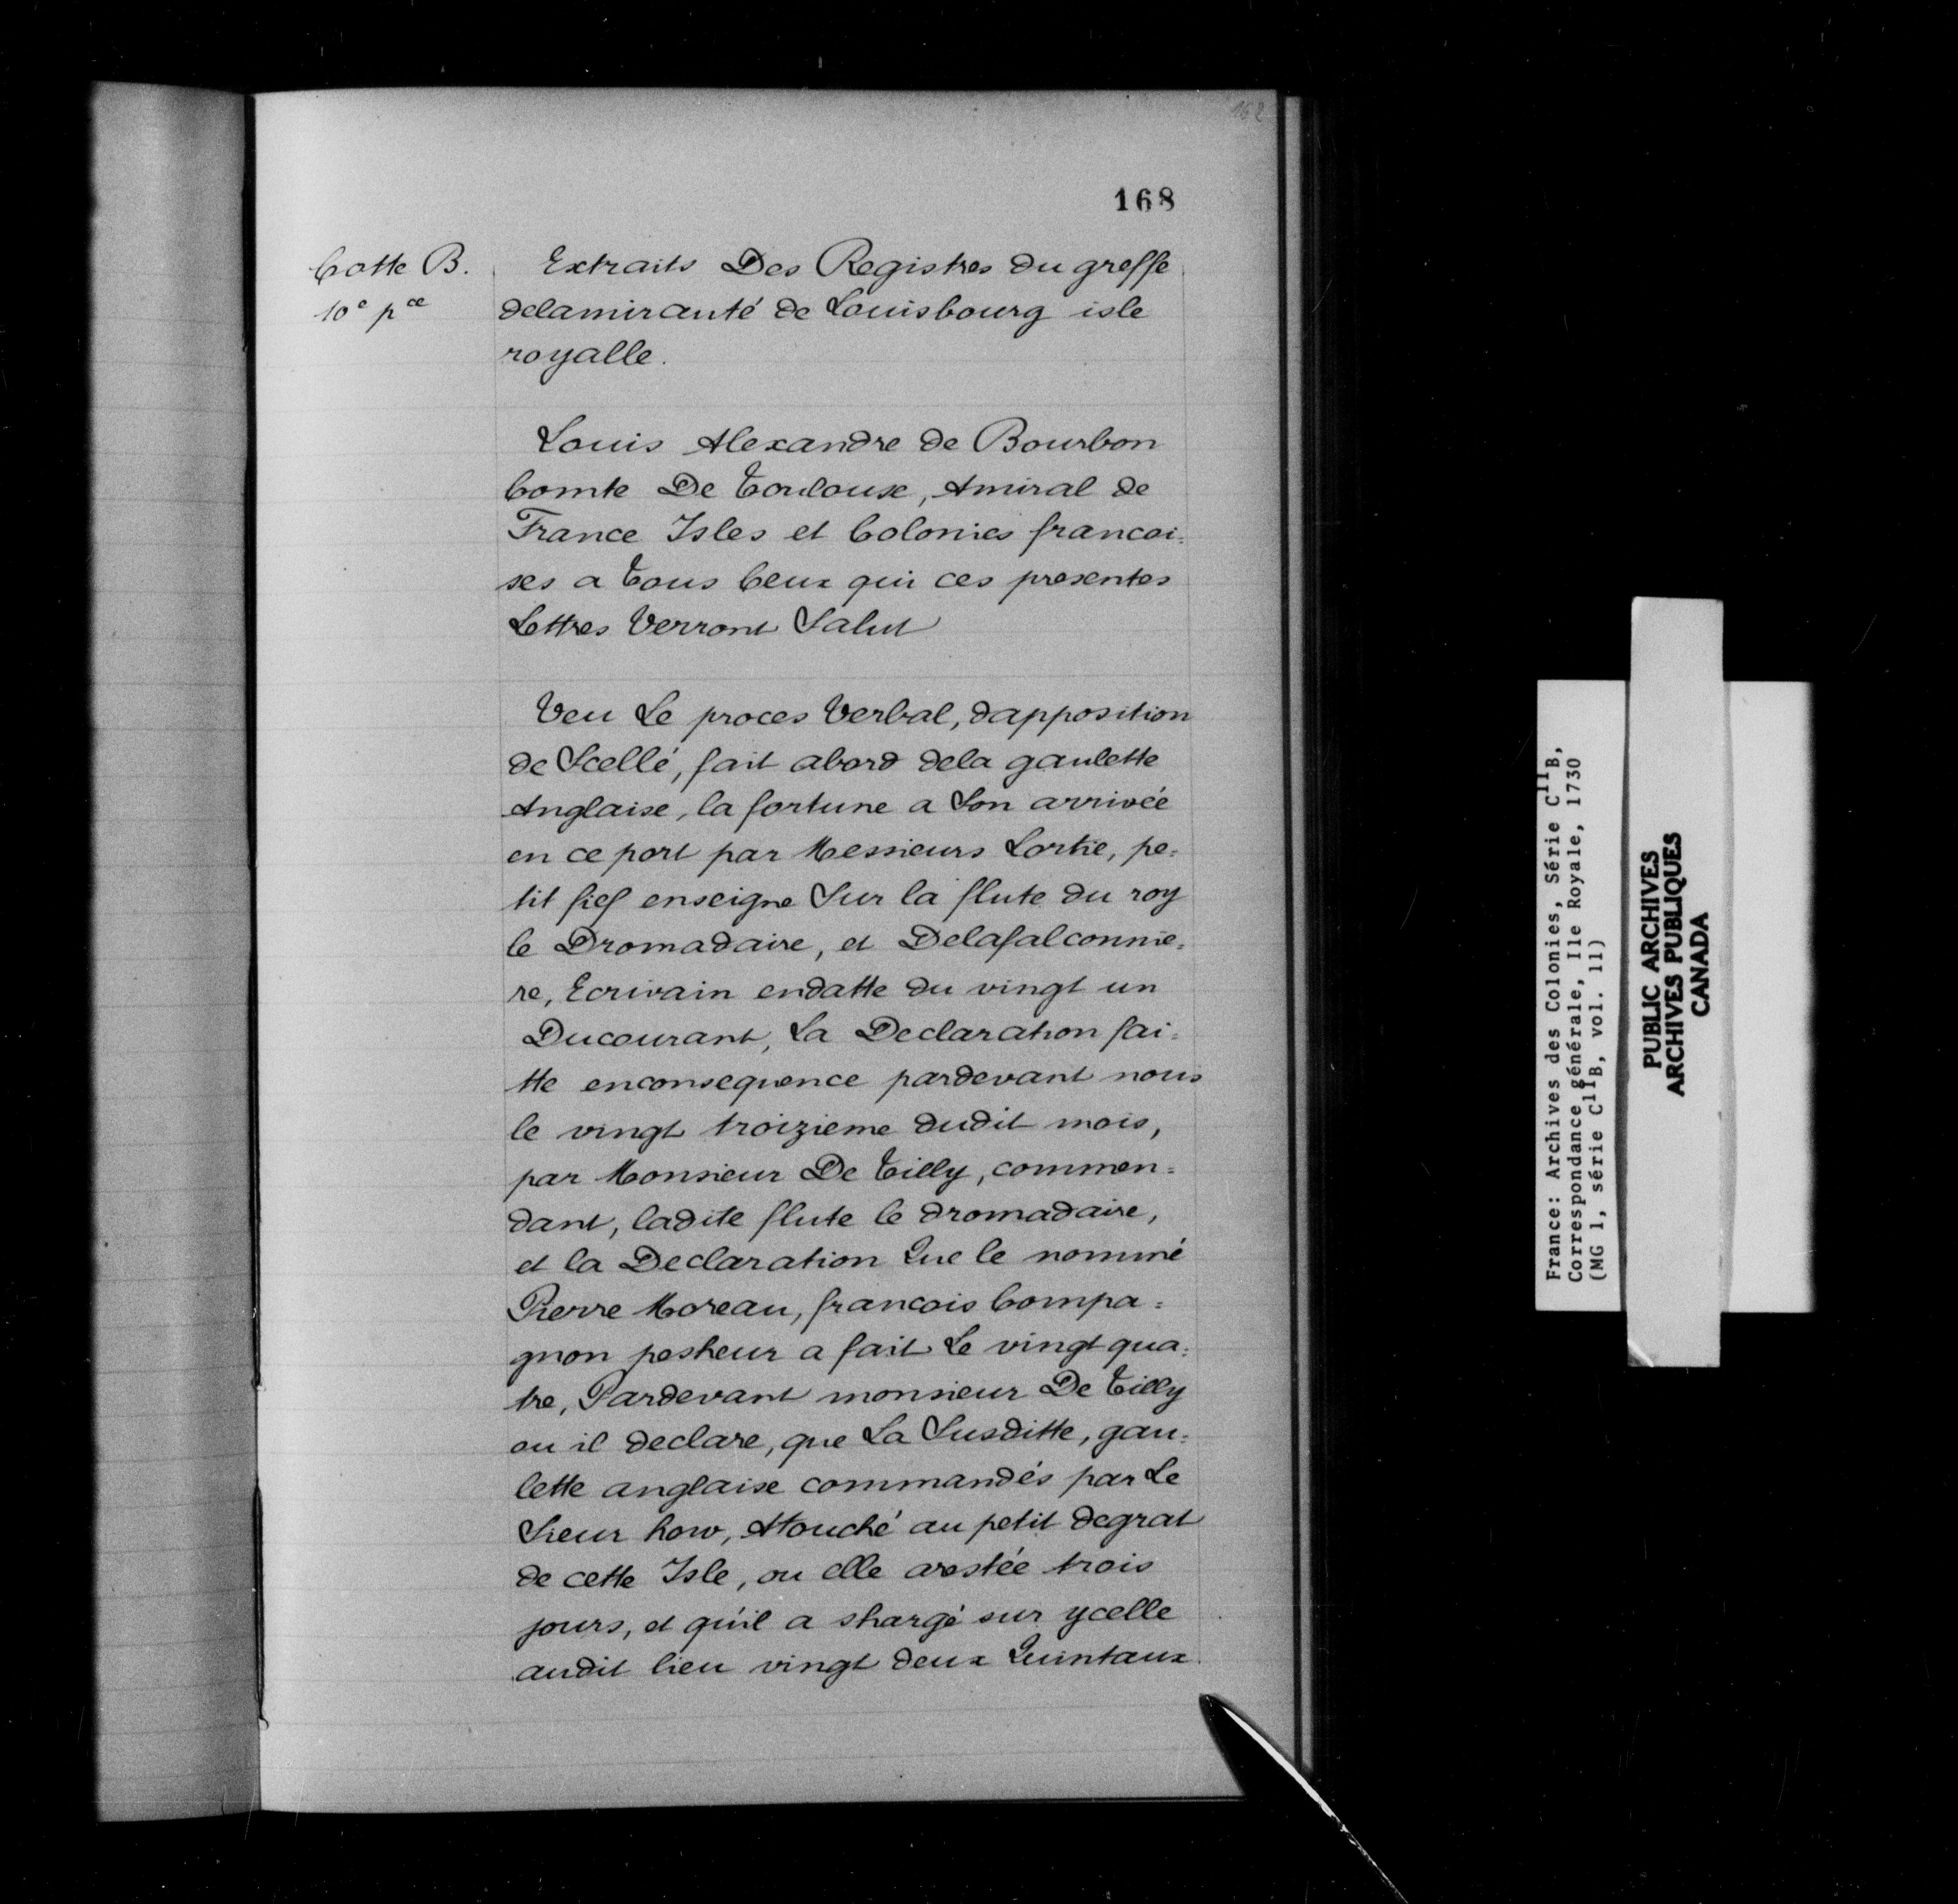 162
168
Cotte B.
10e pce
Extraits Des Registres du greffe
delamirauté de Louisbourg isle
royalle.
Louis Alexandre de Bourbon
Comte De Toulouse, Amiral de
France Isles et Colonies francoi=
ses a Tous Ceux qui ces presentes
Lettres Verront Salut
Veu Le proces Verbal, dapposition
de Scellé, fait abord dela gaulette
Anglaise, la fortune a Son arrivée
en ce port par Messieurs Lortie, pe=
tit fief enseigne Sur la flute du roy
le Dromadaire, et Delafalconnie=
re, Ecrivain endatte du vingt un
Ducourant, La Declaration fai=
tte enconsequence pardevant nous
le vingt troizieme dudit mois,
par Monsieur De Tilly, commen=
dant, ladite flute le dromadaire,
et la Declaration Que le nommé
Pierre Moreau, francois Compa=
gnon pesheur a fait Le vingt qua=
tre, Pardevant monsieur De Tilly
ou il declare, que La Susditte, gau=
lette anglaise commandés par Le
Sieur how, Atouché au petit degrat
de cette Isle, ou elle arestée trois
jours, et qu'il a shargé sur ycelle
audit lieu vingt deux Quintaux
France: Archives des Colonies, Série C11B,
Correspondance générale, Ile Royale, 1730
(MG 1, série C11B, vol. 11)
PUBLIC ARCHIVES
ARCHIVES PUBLIQUES
CANADA